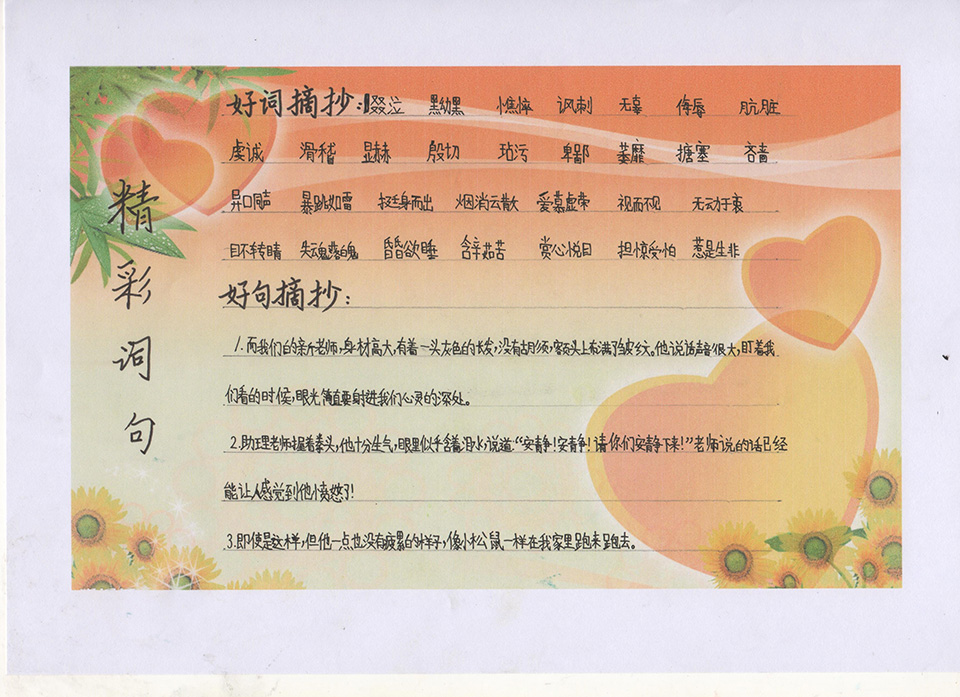 精彩词句
好词摘抄：啜泣 黑黝黝 憔悴 讽刺 无辜 侮辱 肮脏
虔诚 滑稽 显赫 殷切 玷污 卑鄙 萎靡 搪塞 吝啬
异口同声 暴跳如雷 挺身而出 烟消云散 爱慕虚荣 视而不见 无动于衷
目不转睛 失魂落魄 昏昏欲睡 含辛茹苦 赏心悦目 担惊受怕 惹是生非
好句摘抄：
1.而我们的亲斤老师，身材高大，有着一头灰色的长发，没有胡须，额头上布满了皱纹。他说话声音很大，盯着我
们看的时候，眼光简直要射进我们心灵的深处。
2.助理老师握着拳头，他十分生气，眼里似乎含着泪水，说道：“安静！安静！请你们安静下来！”老师说的话已经
能让人感觉到他愤怒了！
3.即使是这样，但他一点也没有疲累的样子，像小松鼠一样在我家里跑来跑去。